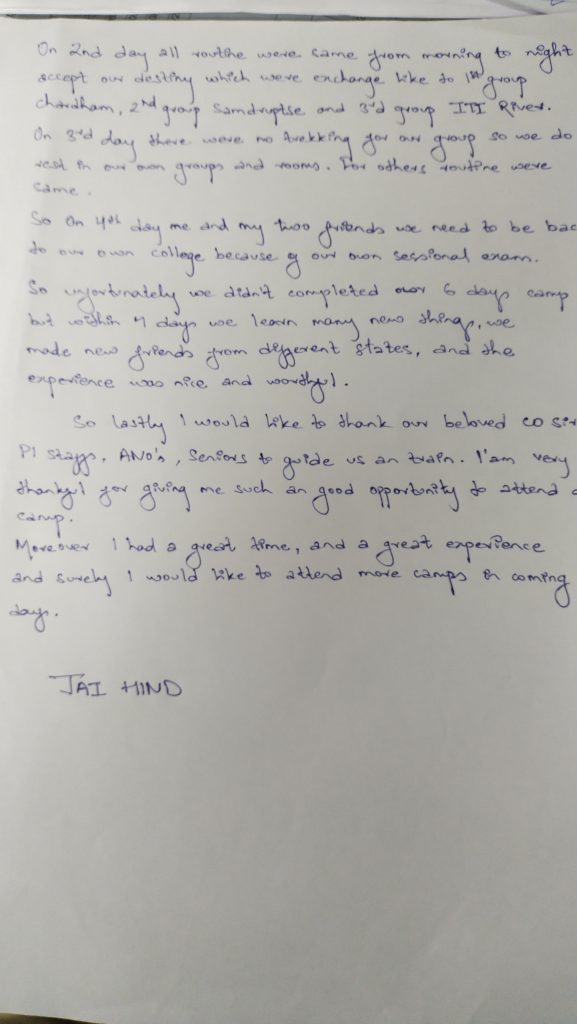 On 2nd day all routine were same from morning to night
accept our destiny which were exchange like to 1st group
chardham, 2nd group Samdruptse and 3rd group ITI River.
On 3rd day there were no trekking for our group so we do
rest in our own groups and rooms. For others routine were
same.
So on 4th day me and my two friends we need to be bac
to our own college because of our own sessional exam.
So unfortunately we didn't completed our 6 days camp
but within 4 days we learn many new things, we
made new friends from different states, and the
experience was nice and worthful.
So lastly I would like to thank our beloved CO sir
PI staffs, ANO's, Seniors to guide us an train. I'am very
thankful for giving me such an good opportunity to attend
camp.
Moreover I had a great time, and a great experience
and surely I would like to attend more camps in coming
days.
JAI HIND